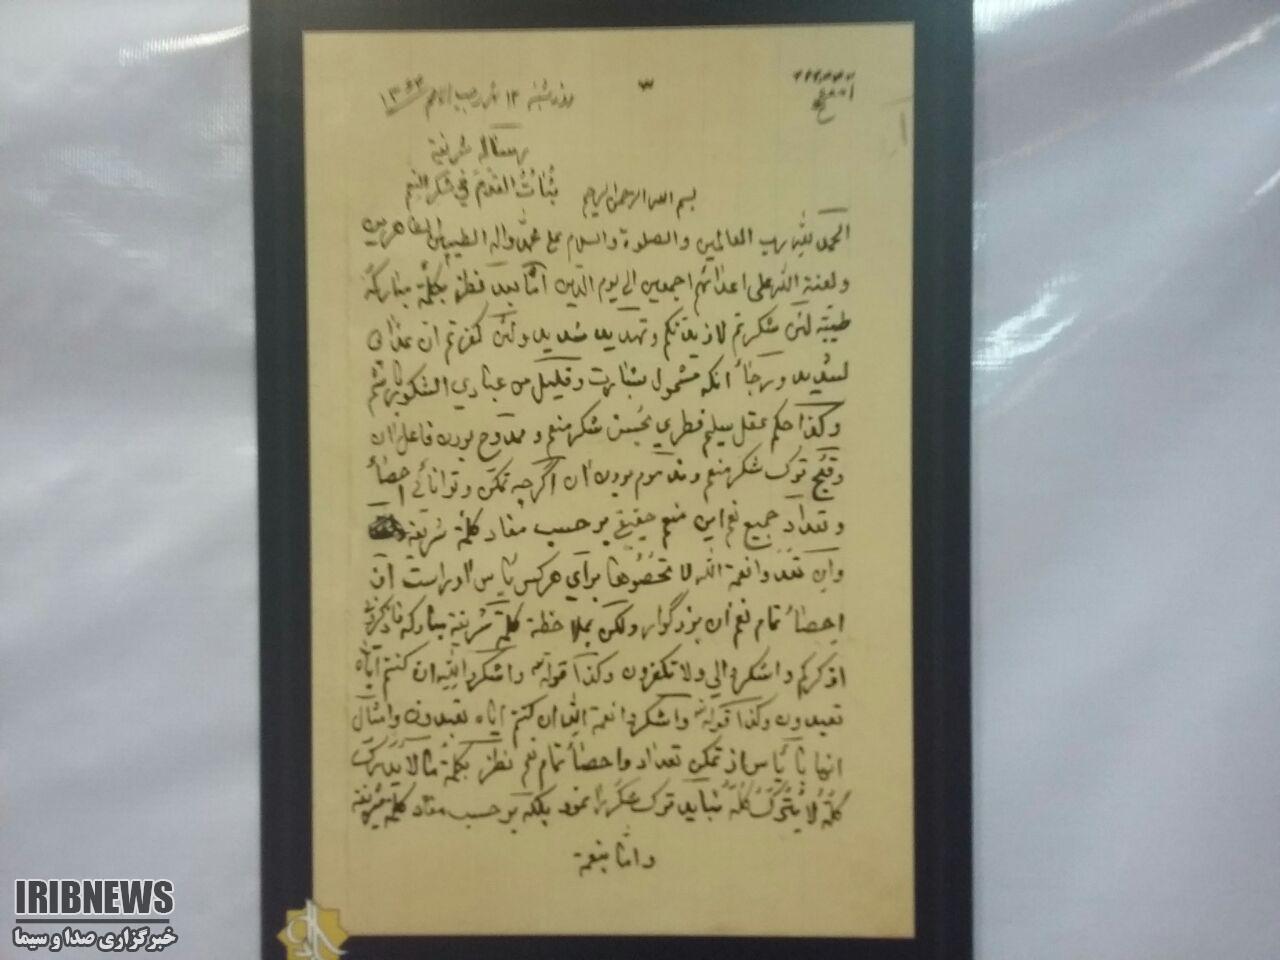 ۳
روز شنبه ۱۲ شهر رجب ۱۳۶۳
رسالهٔ شریفهٔ
ثباتُ القدم في شکر النعم
بسم الله الرحمن الرحیم
الحمد للّه رب العالمین والصلوة والسلام علی محمد واله الطیبین الطاهرین
ولعنة الله علی اعدائهم اجمعین الی یوم الدین امّا بعد نظر بکلمهٔ مبارکهٔ
طیبّه لئن شکرتم لازیدنکم وتهدید شدید ولئن کفرتم ان عذابی
لشدید ورجاءً انکه مشمول بشارت وقلیل من عبادي الشکور باشم
وکذا حکم عقل سلیم فطري بحسن شکر منعم وممدوح بودن فاعل ان
وقبح ترک شکر منعم ومذموم بودن ان اگرچه تمکن وتوانائی احصاءً
وتعداد جمیع نعم این منعم حقیقی بر حسب مفاد کلمهٔ شریفهٔ
وان تعدّوا نعمة الله لا تحصُوها برای هرکس از
احصاء تمام نعم ان بزرگوار ولکن بملاحظهٔ کلمهٔ شریفهٔ مبارکه فاذکرونی
اذکرکم واشکروا لي ولا تکفرون وکذا قوله واشکروا للّه ان کنتم ایاه
تعبدون وکذا قوله واشکروا نعمة الله ان کنتم ایاه تعبدون وامثال
انها با یأس از تمکن تعداد واحصاء تمام نعم نظر بکلمهٔ ما لا یدرک
کلّه لا یُترک کلّه نباید ترک شکر را نمود بلکه بر حسب مفاد کلمهٔ شریفهٔ
وامّا بنعمة
IRIBNEWS
خبرگزاری صدا و سیما